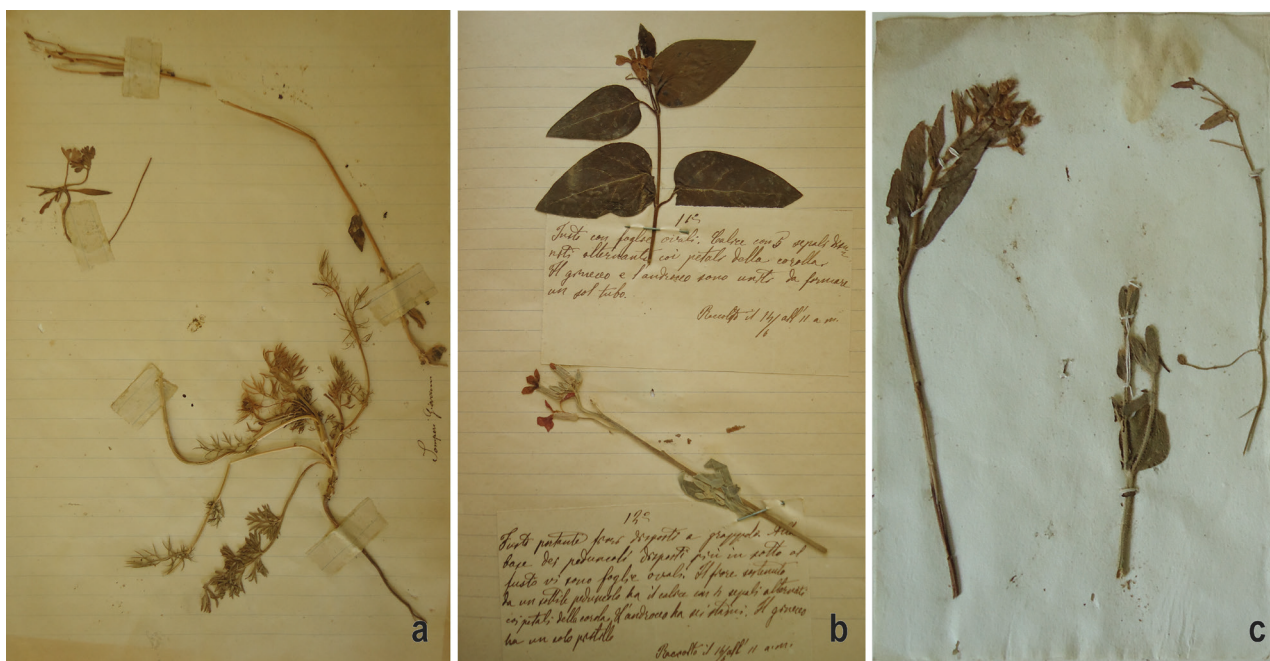 Giovanni
a
11º
Fusto con foglie ovali. Calice con 5 sepali
alternanti coi petali della corolla
Il gineceo e l'androceo sono uniti da formare
un sol tubo.
Raccolto il 14/5 all' 11 a.m.
12º
Fusto portante fiori disposti a grappolo. Alla
base dei peduncoli disposti più in sotto al
fusto vi sono foglie ovali. Il fiore sostenuto
da un sottile peduncolo ha il calice con 4 sepali alternati
coi petali della corolla, l'androceo ha sei stami. Il gineceo
ha un solo pistillo
Raccolto il 14/5 all' 11 a.m.
b
c